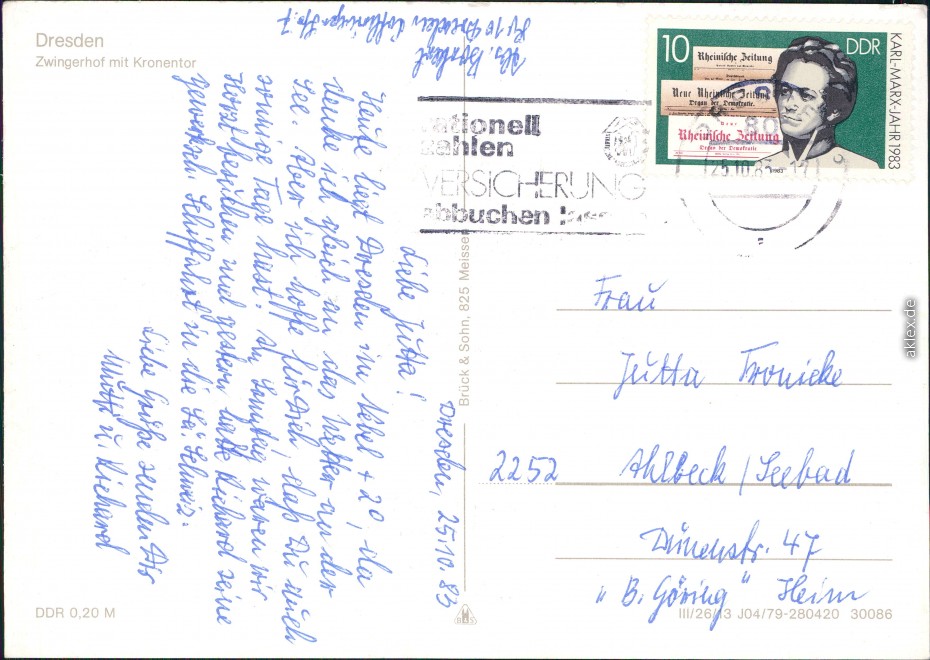 Dresden
Zwingerhof mit Kronentor
Abs.
8010 Dresden
10
DDR
KARL-MARX-JAHR 1983
Rheinische Zeitung
Neue Rheinische Zeitung
Organ der Demokratie.
Neue
Rheinische Zeitung
Organ der Demokratie.
1983
rationell
zahlen
VERSICHERUNG
abbuchen lassen
25.10.83
Dresden, 25.10.83
Liebe Jutta!
Heute liegt Dresden im Nebel + 2°, da
denke ich gleich an das Wetter an der
See. Aber ich hoffe für Dich, daß Du auch
sonnige Tage hast! Am Sonntag waren wir
Horst besuchen und gestern hatte Richard seine
Schiffahrt in die Sä. Schweiz.
Liebe Grüße senden Dir
Mutti u. Richard
Brück & Sohn, 825 Meissen
Frau
Jutta Fronicke
2252 Ahlbeck/Seebad
Dünenstr. 47
"B. Göring" Heim
DDR 0,20 M
III/26/13 J04/79-280420 30086
aklex.de